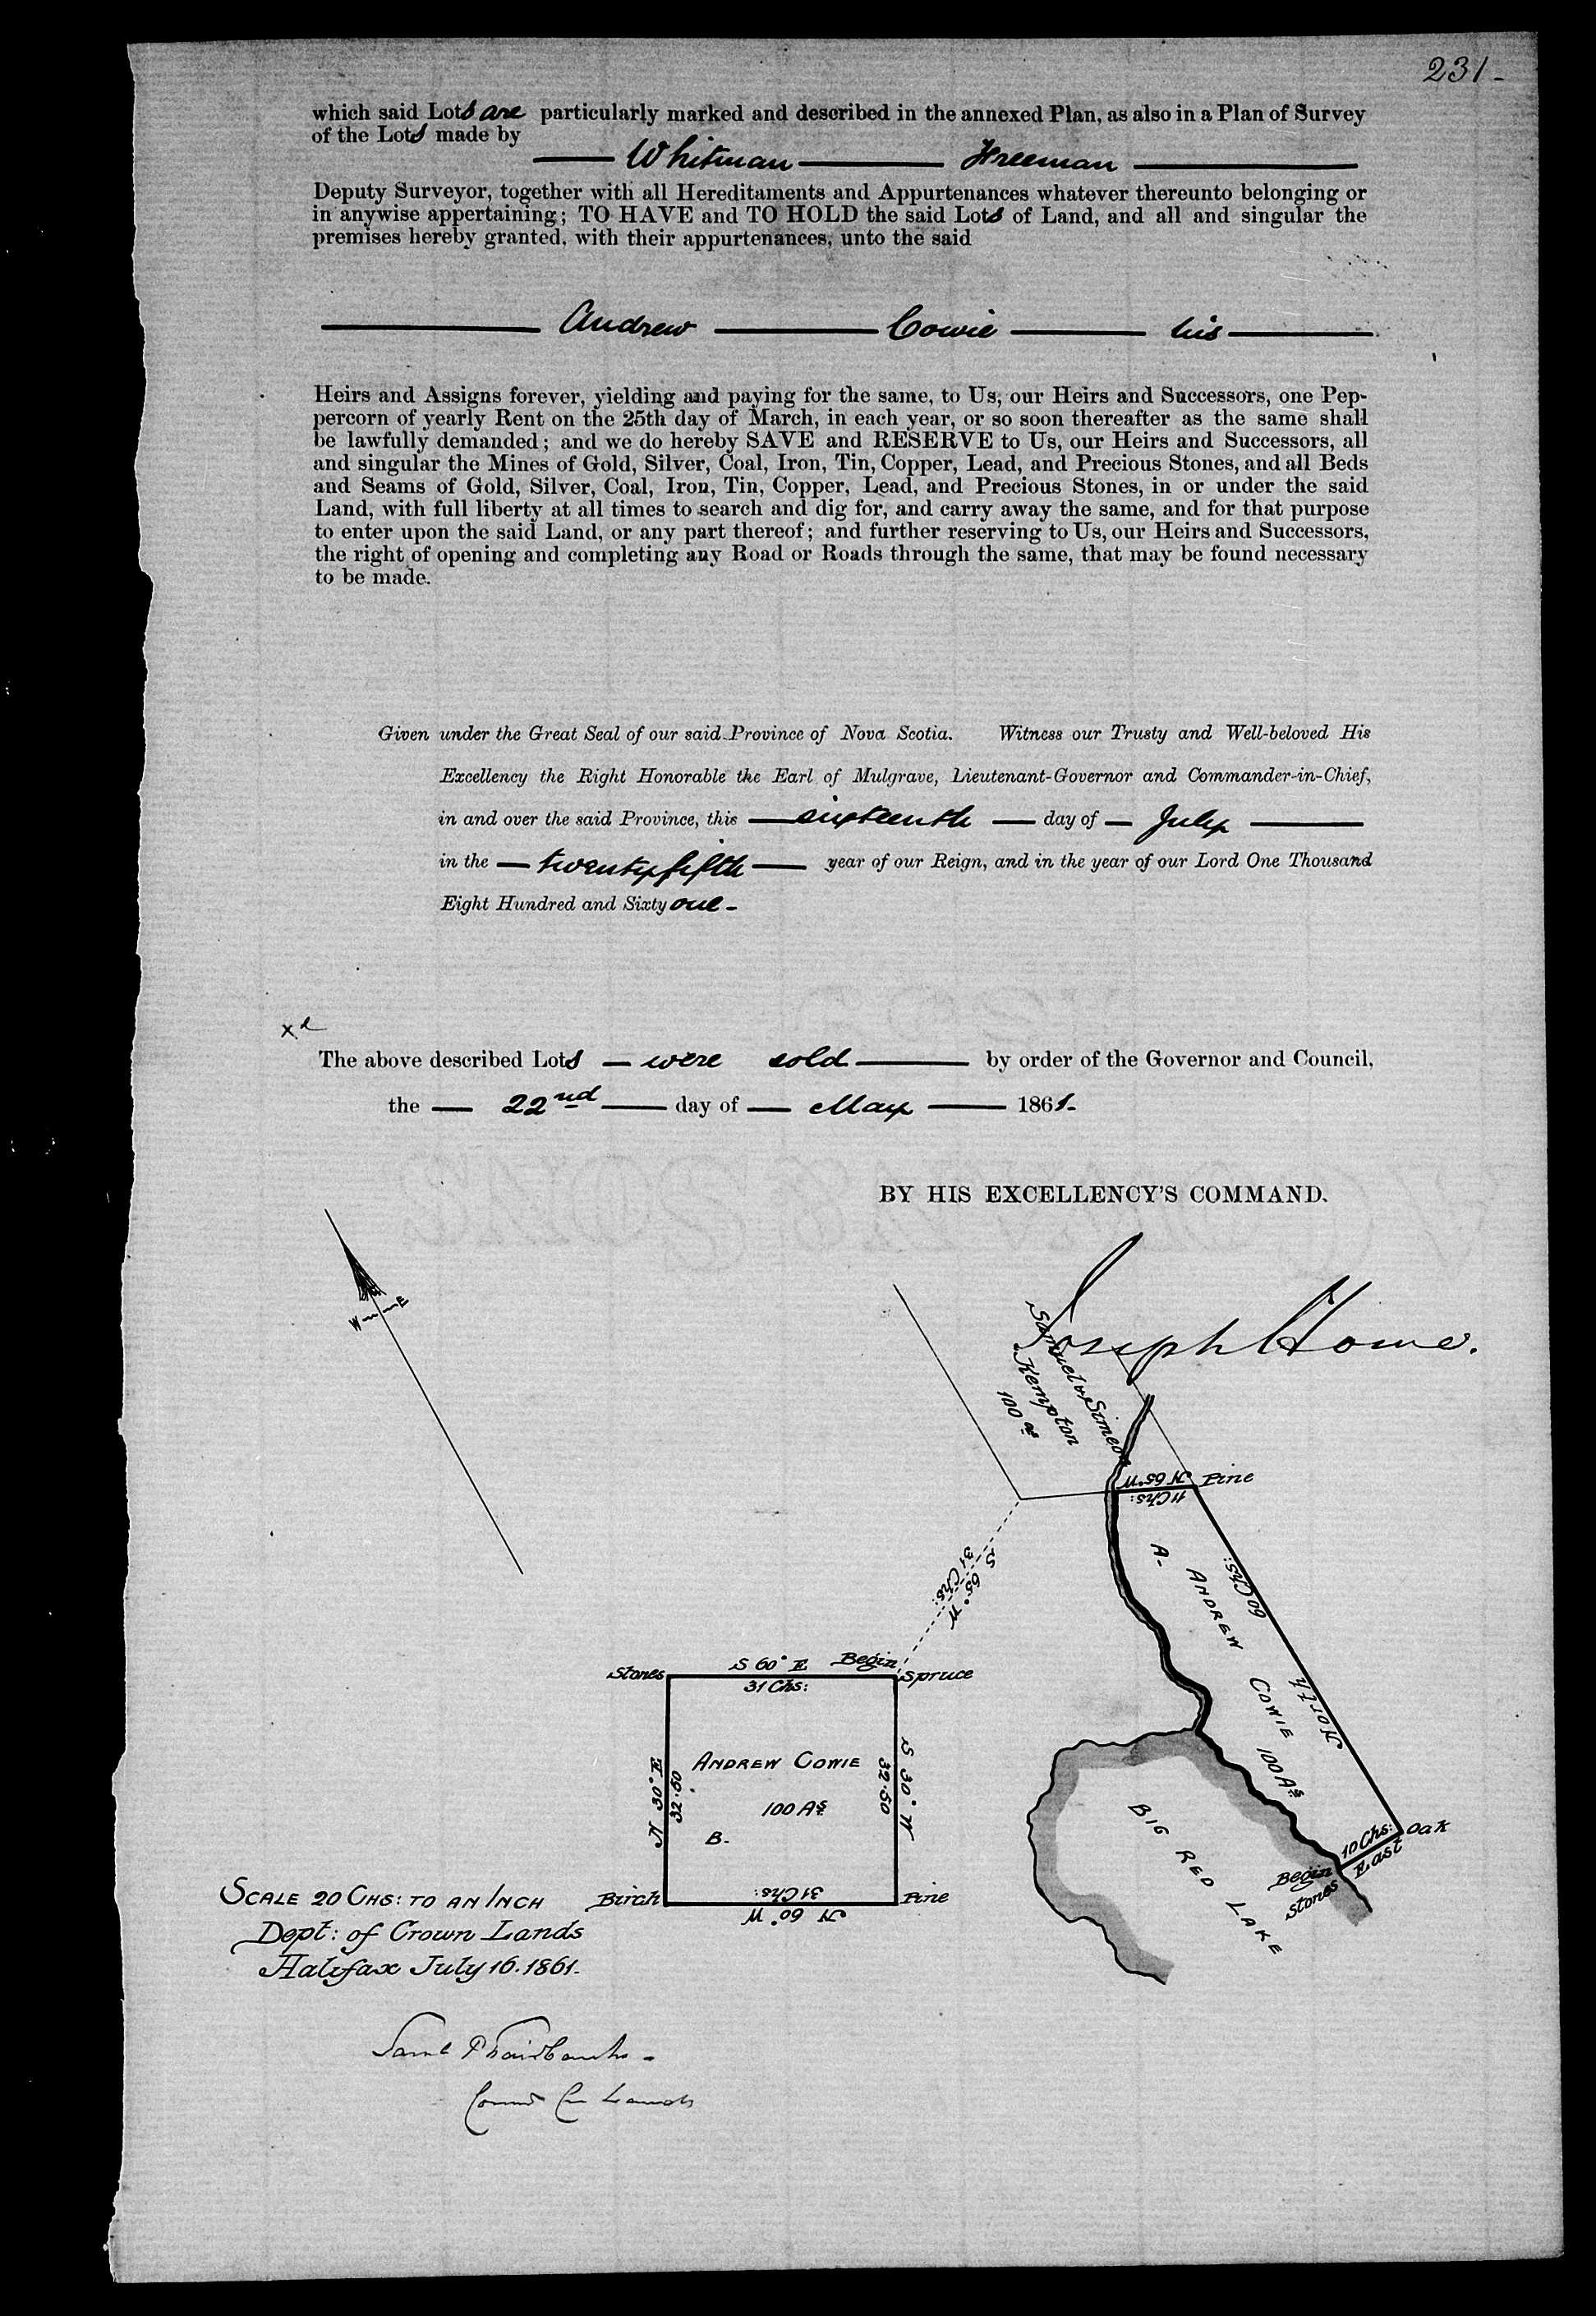 231-
which said Lots are particularly marked and described in the annexed Plan, as also in a Plan of Survey
of the Lots made by
Whitman Freeman
Deputy Surveyor, together with all Hereditaments and Appurtenances whatever thereunto belonging or
in anywise appertaining; TO HAVE and TO HOLD the said Lots of Land, and all and singular the
premises hereby granted, with their appurtenances, unto the said
Andrew Cowie his
Heirs and Assigns forever, yielding and paying for the same, to Us, our Heirs and Successors, one Pep-
percorn of yearly Rent on the 25th day of March, in each year, or so soon thereafter as the same shall
be lawfully demanded; and we do hereby SAVE and RESERVE to Us, our Heirs and Successors, all
and singular the Mines of Gold, Silver, Coal, Iron, Tin, Copper, Lead, and Precious Stones, and all Beds
and Seams of Gold, Silver, Coal, Iron, Tin, Copper, Lead, and Precious Stones, in or under the said
Land, with full liberty at all times to search and dig for, and carry away the same, and for that purpose
to enter upon the said Land, or any part thereof; and further reserving to Us, our Heirs and Successors,
the right of opening and completing any Road or Roads through the same, that may be found necessary
to be made.
Given under the Great Seal of our said Province of Nova Scotia. Witness our Trusty and Well-beloved His
Excellency the Right Honorable the Earl of Mulgrave, Lieutenant-Governor and Commander-in-Chief,
in and over the said Province, this sixteenth day of July
in the twenty fifth year of our Reign, and in the year of our Lord One Thousand
Eight Hundred and Sixty one-
xd
The above described Lots were sold by order of the Governor and Council,
the 22nd day of May 1861-
BY HIS EXCELLENCY'S COMMAND.
Joseph Howe.
W E
Samuel & Simeon
Kempton
100 as
N 65° W
11 Chs:
Pine
S 65° W
31 Chs:
A-
ANDREW COWIE 100 As
60 Chs:
North
Stones
S 60° E
31 Chs:
Begin
Spruce
N 30° E
32.50
ANDREW COWIE
100 As
B-
S 30° W
32.50
BIG RED LAKE
10 Chs:
East
Oak
Begin
Stones
Birch
31 Chs:
N 60° W
Pine
SCALE 20 CHS: TO AN INCH
Dept: of Crown Lands
Halifax July 16. 1861-
Saml P Fairbanks-
Commr Cn Lands